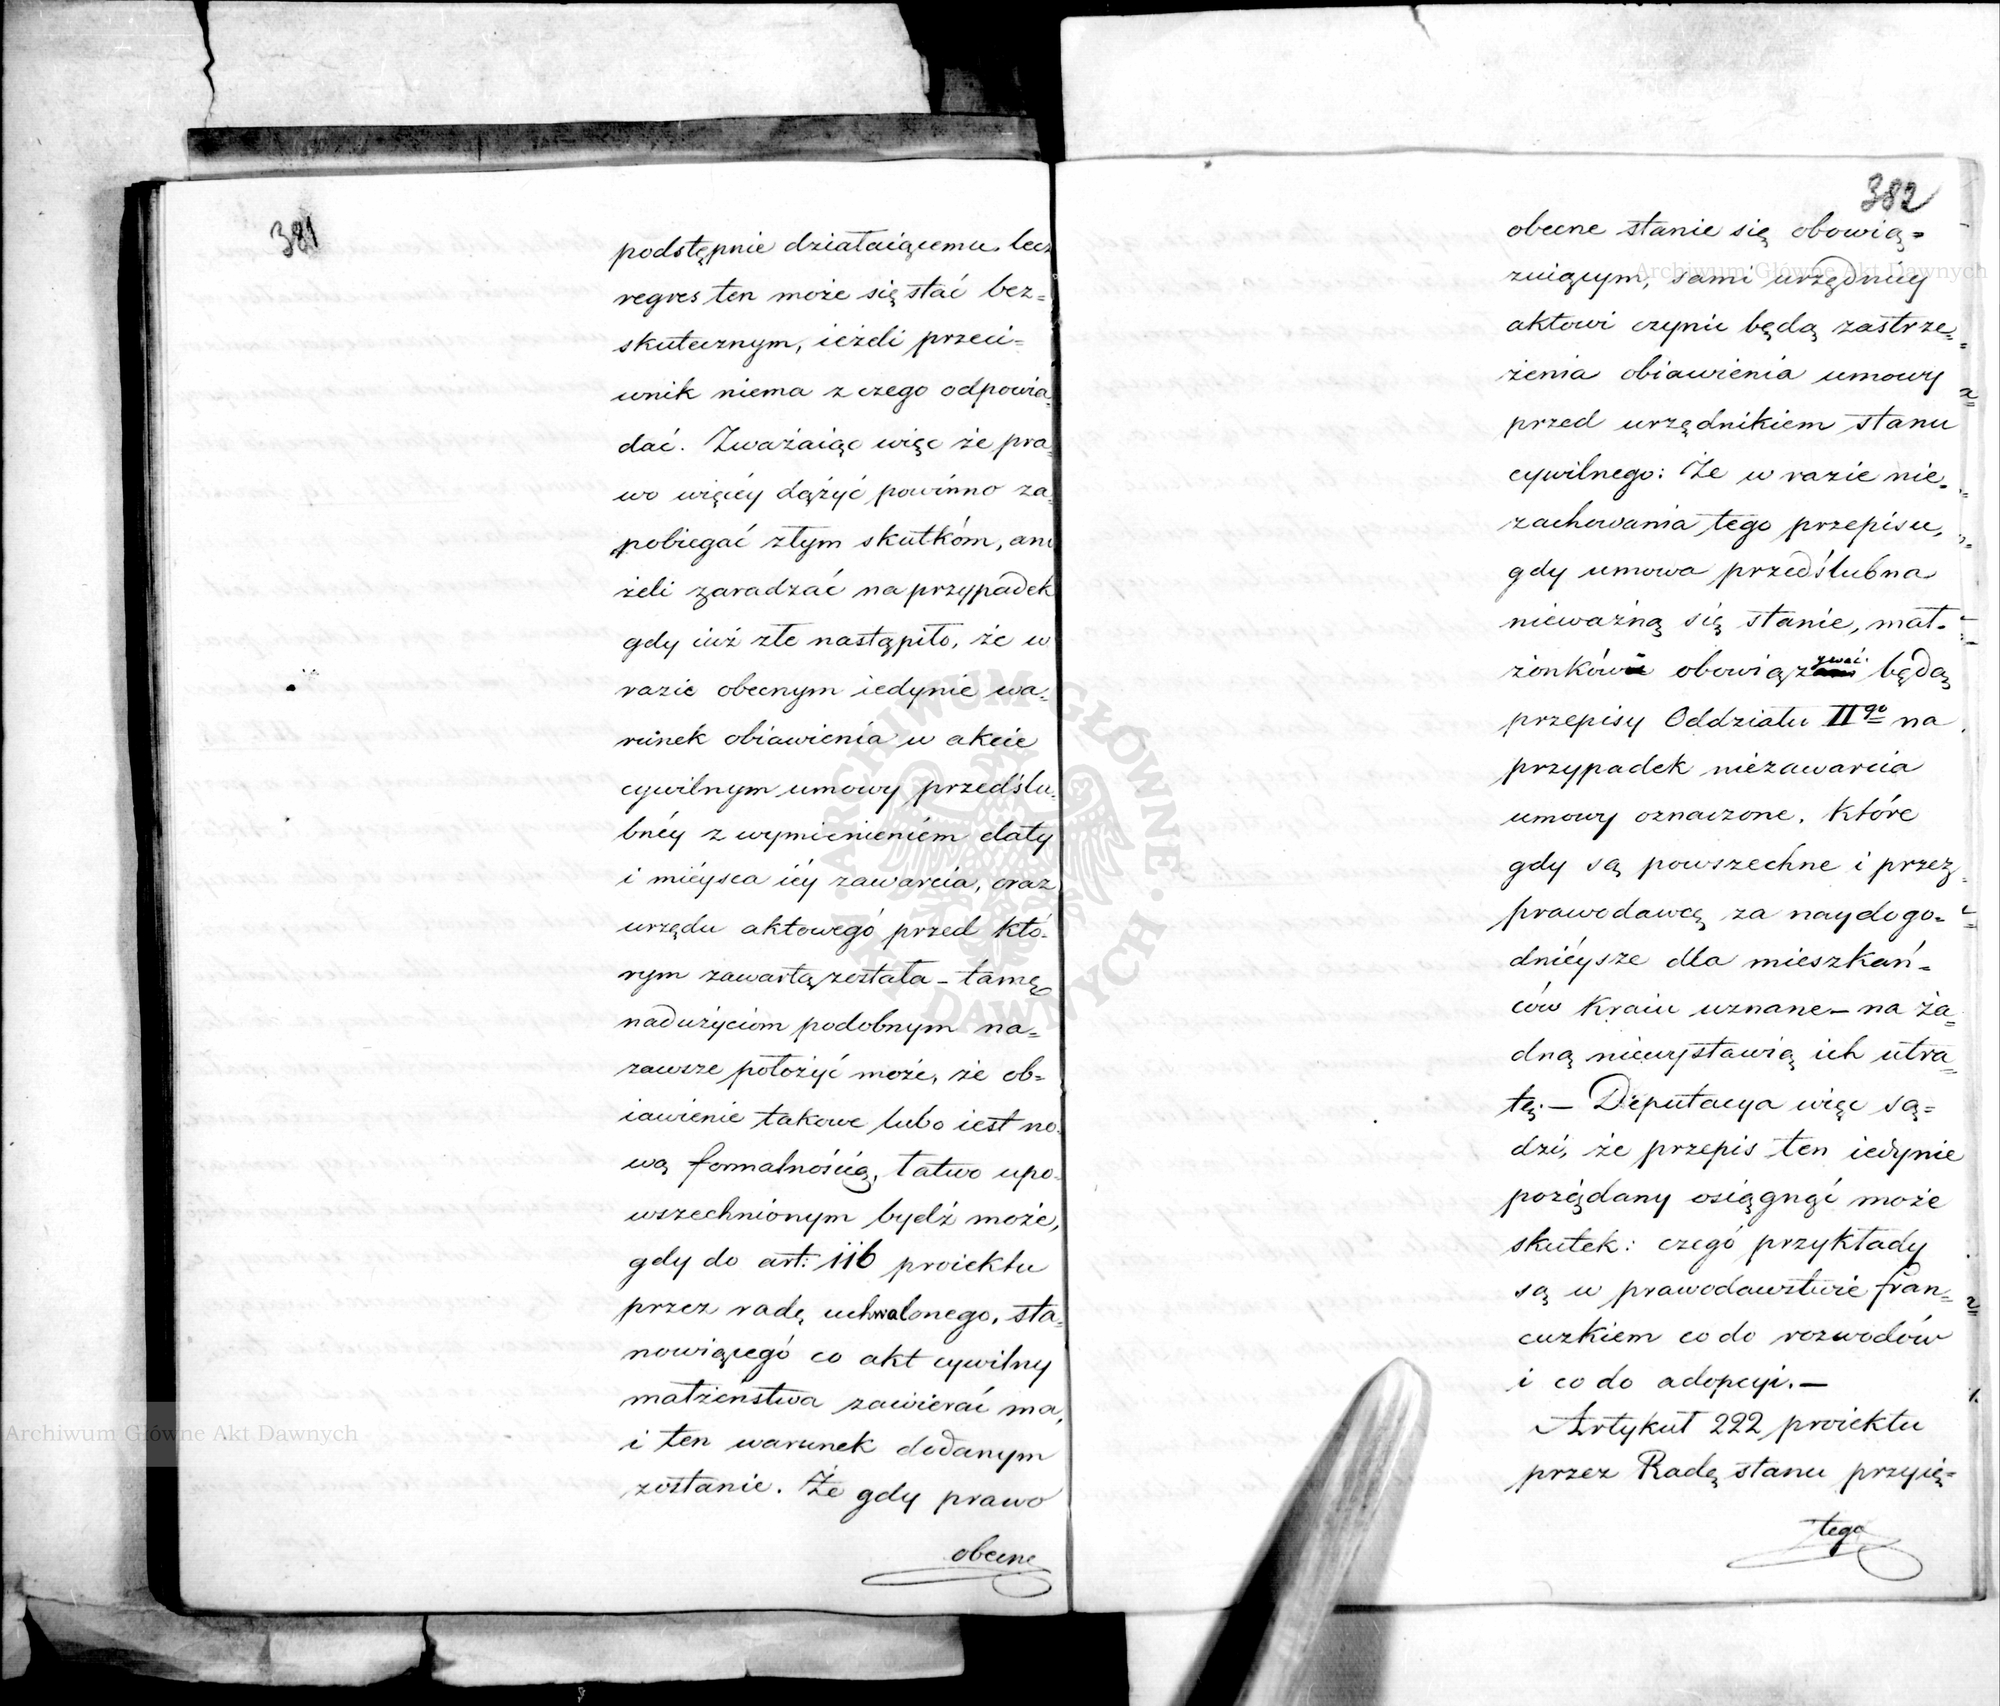 381
podstępnie działaiącemu, lecz
regres ten może się stać bez=
skutecznym, ieżeli przeci=
wnik niema z czego odpowia=
dać. Zważaiąc więc że pra=
wo więcéy dążyć powinno za=
pobiegać złym skutkóm, ani
żeli zaradzać na przypadek
gdy iuż złe nastąpiło, że w
razie obecnym iedynie wa=
runek obiawienia w akcie
cywilnym umowy przedślu=
bnéy z wymienieniem daty
i mieysca iéy zawarcia, oraz
urzędu aktowego przed któ=
rym zawartą została – tamę
nadużyciom podobnym na=
zawsze położyć może, że ob=
iawienie takowe lubo iest no=
wą formalnością, łatwo upo=
wszechnionym bydź może,
gdy do art: 116 proiektu
przez radę uchwalonego, sta=
nowiącego co akt cywilny
małżeństwa zawierać ma,
i ten warunek dodanym
zostanie. Że gdy prawo
obecne
382
obecne stanie się obowią=
zuiącym, sami urzędnicy
aktowi czynić będą zastrze=
żenia obiawienia umowy
przed urzędnikiem stanu
cywilnego: Że w razie nie=
zachowania tego przepisu,
gdy umowa przedślubna
nieważną się stanie, mał=
żonków obowiązywać będą
przepisy Oddziału IIgo na
przypadek niezawarcia
umowy oznaczone. Które
gdy są powszechne i przez
prawodawcę za naydogo=
dniéysze dla mieszkań=
ców Kraiu uznane – na ża=
dną niewystawią ich utra=
tę. – Deputacya więc są=
dzi, że przepis ten iedynie
pożądany osiągnąć może
skutek: czego przykłady
są w prawodawstwie fran=
cuzkiem co do rozwodów
i co do adopcyi. –
Artykuł 222 proiektu
przez Radę stanu przyię=
tego
Archiwum Główne Akt Dawnych
Archiwum Główne Akt Dawnych
· ARCHIWUM GŁÓWNE · AKT DAWNYCH